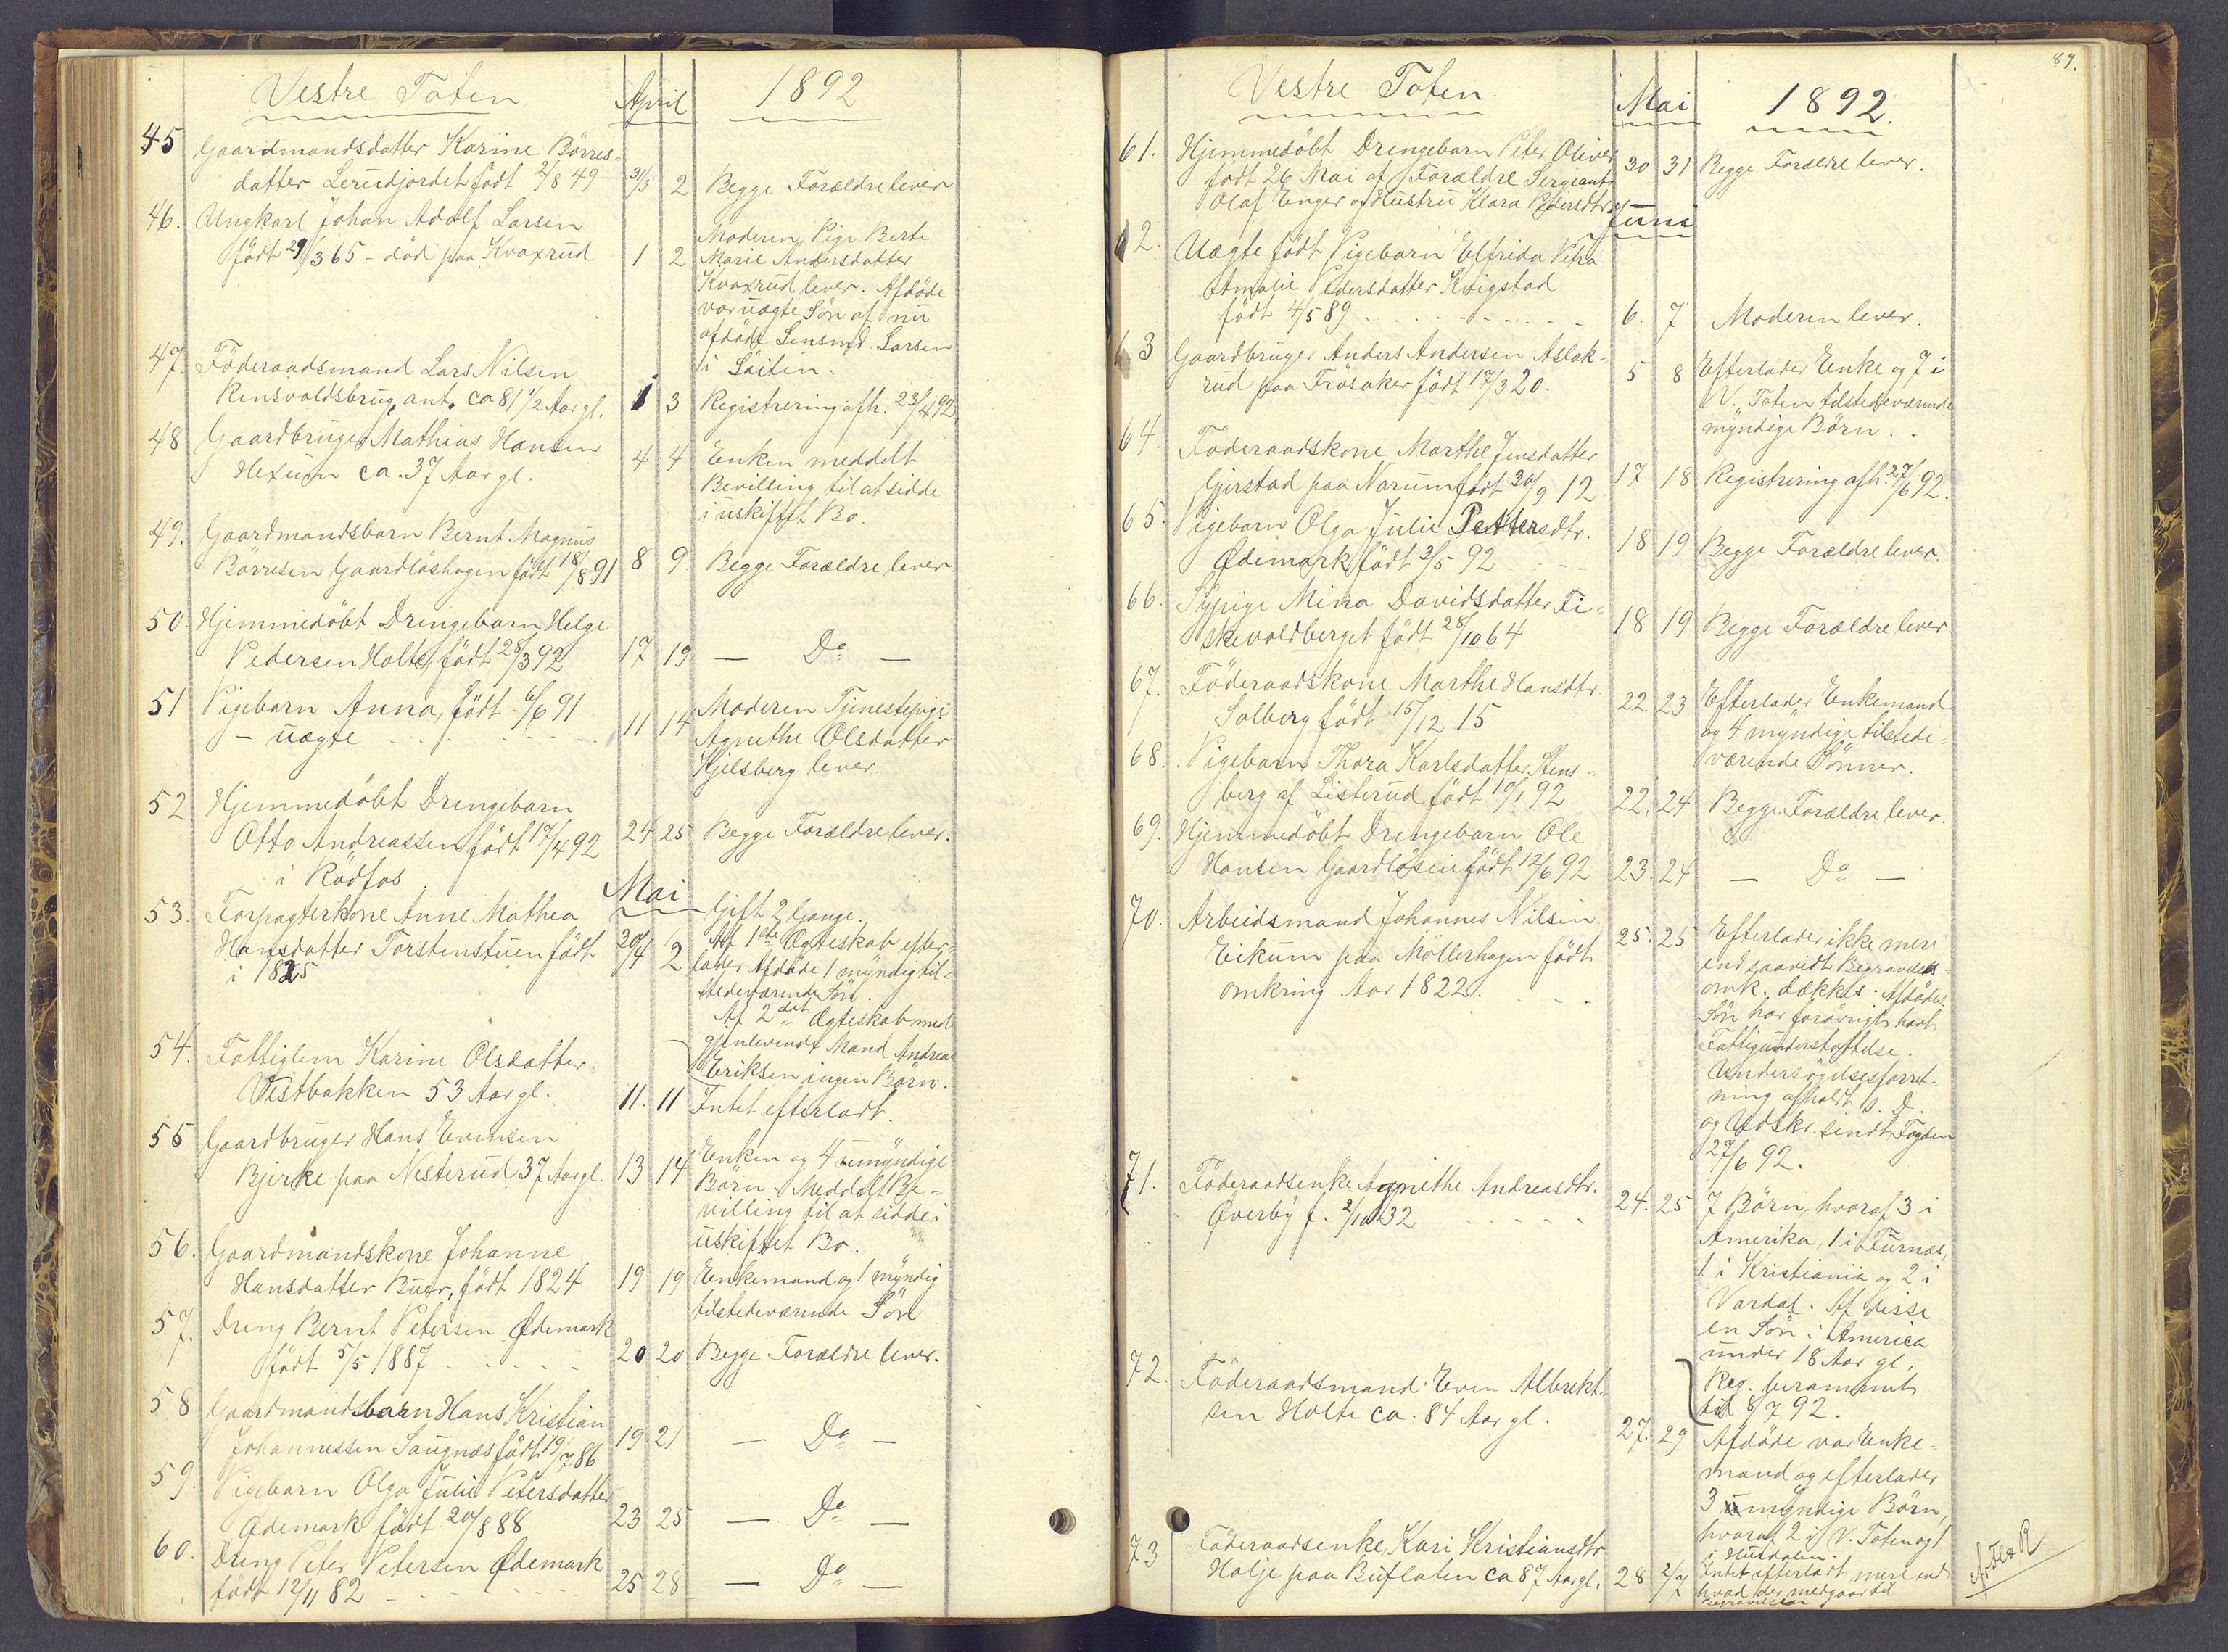 Vestre Toten April 1892
45 Gaardmandsdatter Karine Börres-
datter Lerudjordet født 2/8 49 31/3 2 Begge Forældre lever
46. Ungkarl Johan Adolf Larsen
født 29/3 65 - død paa Kvaxrud 1 2
Moderen, Pige Berte
Marie Andersdatter
Kvaxrud lever. Afdöde
var uægte Sön af nu
afdöde Lensmd. Larsen
i Säiten.
47. Föderaadsmand Lars Nilsen
Rensvoldsbrug, ant. ca 81 1/2 Aar gl. 1 3 Registrering afh. 23/4 92
48 Gaardbruger Mathias Hansen
Hexum ca. 37 Aar gl. 4 4 Enken meddelt
Bevilling til at sidde
i uskiftet Bo.
49. Gaardmandsbarn Bernt Magnus
Börresen Gaardløshagen født 18/8 91 8 9. Begge Forældre lever
50. Hjemmedöbt Drengebarn Helge
Pedersen Holte, født 28/3 92 17 19 — Do —
51 Pigebarn Anna, født 6/6 91
- uægte 11 14
Moderen Tjenestepige
Agnethe Olsdatter
Kjelsberg lever.
52 Hjemmedöbt Drengebarn
Otto Andreassen født 17/4 92 24 25 Begge Forældre lever.
i Rødfos
Mai
53. Forpagterkone Anne Mathea
Hansdatter Torstenstuen født 30/4 2
i 1825
Gift 2 Gange.
Af 1ste Ægteskab efter-
lader Afdøde 1 myndig til-
stedeværende Søn.
Af 2det Ægteskab med
gjenlevende Mand Andreas
Eriksen ingen Børn.
54. Fattiglem Karine Olsdatter
Vestbakken 53 Aar gl. 11. 11 Intet efterladt.
55 Gaardbruger Hans Evensen
Bjirke paa Nesterud 37 Aar gl. 13 14 Enken og 4 umyndige
Børn. Meddelt Be-
villing til at sidde i
uskiftet Bo.
56. Gaardmandskone Johanne
Hansdatter Buer, født 1824 19 19 Enkemand og 1 myndig
tilstedeværende Sön
57. Dreng Bernt Petersen Ødemark
født 5/5 1887 20 20 Begge Forældre lever.
58 Gaardmandsbarn Hans Kristian
Johannessen Saugnæs født 19/7 86 19 21 — Do —
59. Pigebarn Olga Julie Petersdatter
Ødemark født 20/8 88 23 25 — Do —
60. Dreng Peter Petersen Ødemark
født 12/11 82 25 28 — Do —
89.
Vestre Toten. Mai 1892.
61. Hjemmedöbt Drengebarn Peter Oliver
født 26 Mai af Forældre Sergeant 30 31 Begge Forældre lever.
Olaf Enger og Hustru Klara Pedersdtr.
Juni
62. Uægte født Pigebarn Elfrida Petra
Amalie Pedersdatter Kvigstad
født 4/5 89 6. 7 Moderen lever.
63 Gaardbruger Anders Andersen Aslak-
rud paa Frösaker født 17/3 20. 5 8 Efterlader Enke og 7 i
V. Toten tilstedeværende
myndige Börn.
64. Föderaadskone Marthe Jensdatter
Gjerstad paa Narum født 30/9 12 17 18 Registrering afh. 27/6 92.
65. Pigebarn Olga Julie Pettersdtr.
Ødemark født 3/5 92 18 19 Begge Forældre lever.
66. Sypige Mina Davidsdatter Fi-
skevoldberget født 28/10 64 18 19 Begge Forældre lever
67. Föderaadskone Marthe Hansdtr.
Solberg født 15/12 15 22 23 Efterlader Enkemand
og 4 myndige tilstede-
værende Sønner.
68. Pigebarn Thora Karlsdatter Stens-
berg af Listerud født 10/1 92 22. 24 Begge Forældre lever.
69. Hjemmedöbt Drengebarn Ole
Hansen Gaardløseie født 12/6 92 23. 24 — Do —
70. Arbeidsmand Johannes Nilsen
Eikum paa Möllerhagen født 25. 25
omkring Aar 1822.
Efterlader ikke mere
end saavidt Begravelses-
omk. dækkes. Afdødes
Sön har forøvrigt havt
Fattigunderstøttelse.
Undersøgelsesforret-
ning afholdt s. D.
og Udskr. sendt Fogden
27/6 92.
71. Föderaadsenke Agnethe Andreasdtr.
Överby f. 2/10 32 24. 25 7 Börn, hvoraf 3 i
Amerika, 1 i Furnæs,
1 i Kristiania og 2 i
Vardal. Af disse
en Sön i America
under 18 Aar gl.
Reg. berammet
til 8/7 92.
72. Föderaadsmand Even Albrekt-
sen Holte ca. 84 Aar gl. 27. 29 Afdøde var Enke-
mand og efterlader
3 myndige Börn,
hvoraf 2 i V. Toten og 1
i Hurdalen.
73 Föderaadsenke, Kari Kristiansdtr.
Holje paa Buflaten ca 87 Aar gl. 28 2/7 Intet efterladt mere end
hvad der medgaar til
Begravelsen